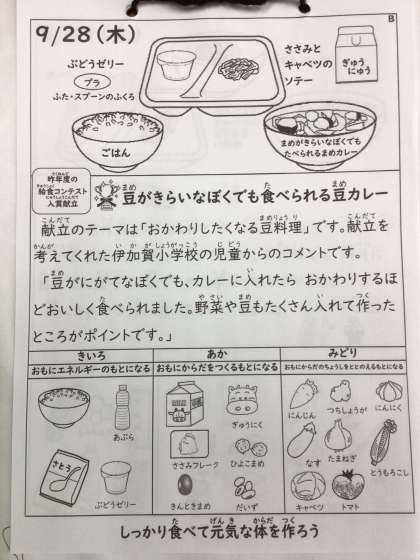 B
9/28(木)
ぶどうゼリー
プラ
ふた・スプーンのふくろ
ささみと
キャベツの
ソテー
ぎゅう
にゅう
ごはん
まめがきらいなぼくでも
たべられるまめカレー
さくねんど
昨年度の
きゅうしょく
給食コンテスト
にゅうしょうこんだて
入賞献立
まめ た まめ
豆がきらいなぼくでも食べられる豆カレー
こんだて まめりょうり こんだて
献立のテーマは「おかわりしたくなる豆料理」です。献立を
かんが いかがしょうがっこう じどう
考えてくれた伊加賀小学校の児童からのコメントです。
まめ い
「豆がにがてなぼくでも、カレーに入れたら おかわりするほ
た やさい まめ い つく
どおいしく食べられました。野菜や豆もたくさん入れて作った
ところがポイントです。」
きいろ
おもにエネルギーのもとになる
あか
おもにからだをつくるもとになる
みどり
おもにからだのちょうしをととのえるもとになる
あぶら
さとう
ぶどうゼリー
ぎゅうにく
ささみフレーク
ひよこまめ
きんときまめ
だいず
にんじん
つちしょうが
にんにく
なす
たまねぎ
とうもろこし
キャベツ
トマト
た げんき からだ つく
しっかり食べて元気な体を作ろう